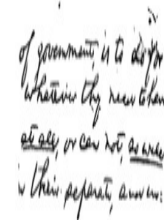 of government, is to do for
whatever they need to have
at all, or can not, so well
their separate, and